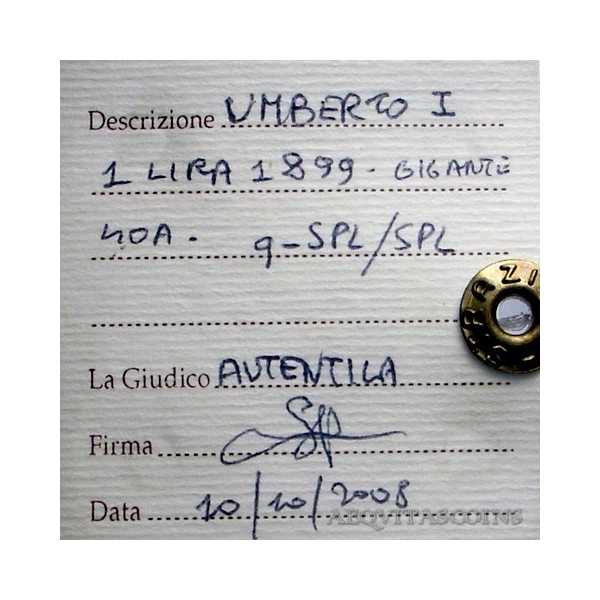 Descrizione UMBERTO I
1 LIRA 1899 - GIGANTE
40A - q-SPL/SPL
La Giudico AUTENTICA
Firma
Data 10/10/2008
AEQVITASCOINS